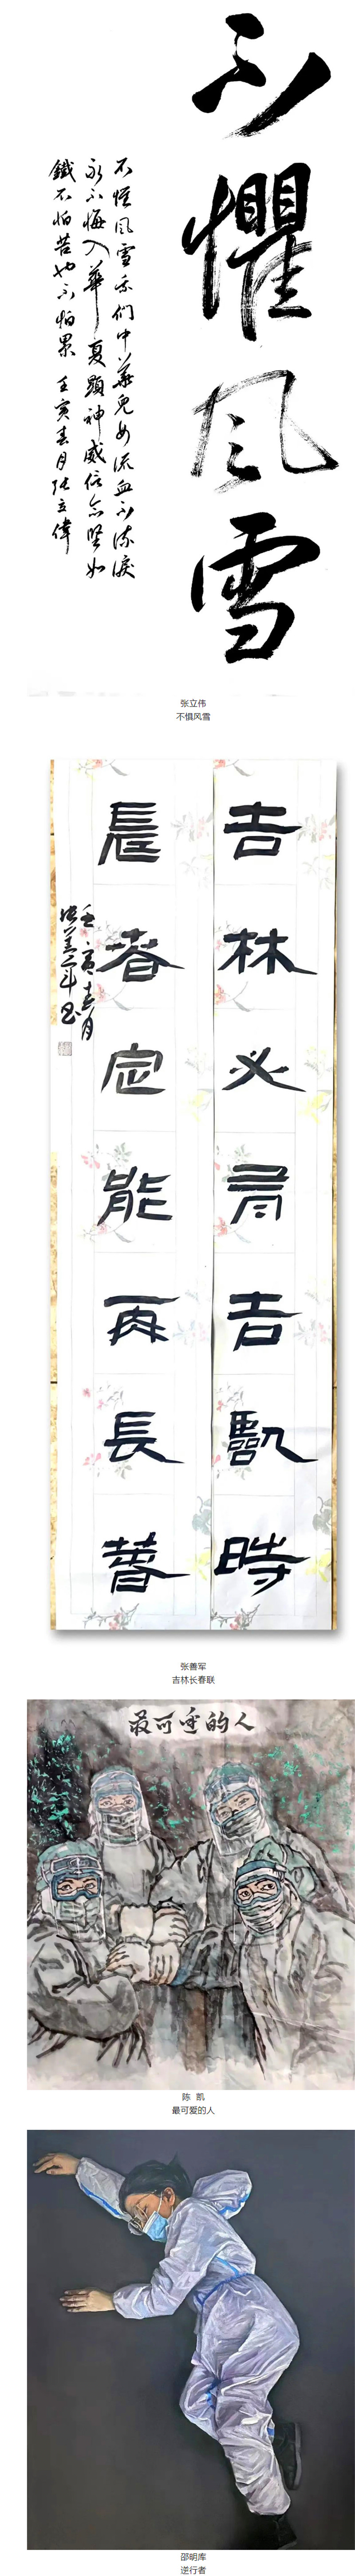 不懼风雪
不惧风雪我们中華兒女流血不流淚
永不悔入華夏顯神威信念坚如
鐵不怕苦也不怕累 壬寅春月张立偉
张立伟
不惧风雪
吉林必吉凱時
春定能再長春
壬寅春月
张善军书
张善军
吉林长春联
最可爱的人
陈 凯
最可爱的人
邵明库
逆行者